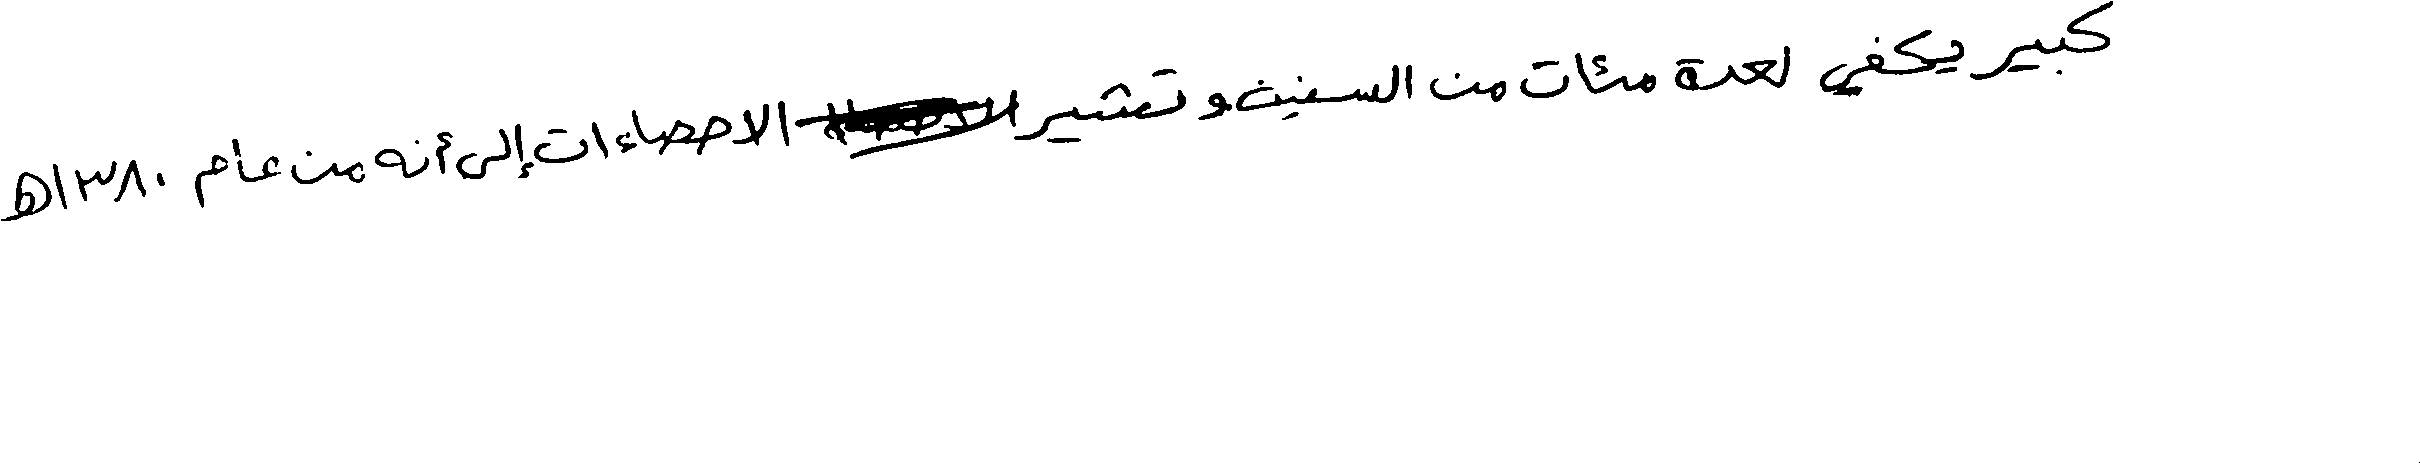 كبير يكفي لعدة مئات من السنين وتشير الاحصاءات إلى أنه من عام ١٣٨٠هـ